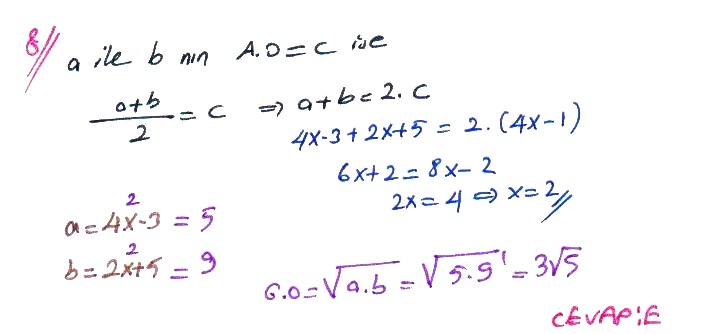 8// a ile b nin A.O = C ise
a+b/2 = C ⇒ a+b = 2.C
4x-3+2x+5 = 2.(4x-1)
6x+2 = 8x-2
2x = 4 ⇒ x = 2//
2
a = 4x-3 = 5
2
b = 2x+5 = 9
G.O = √a.b = √5.9 = 3√5
CEVAP:E